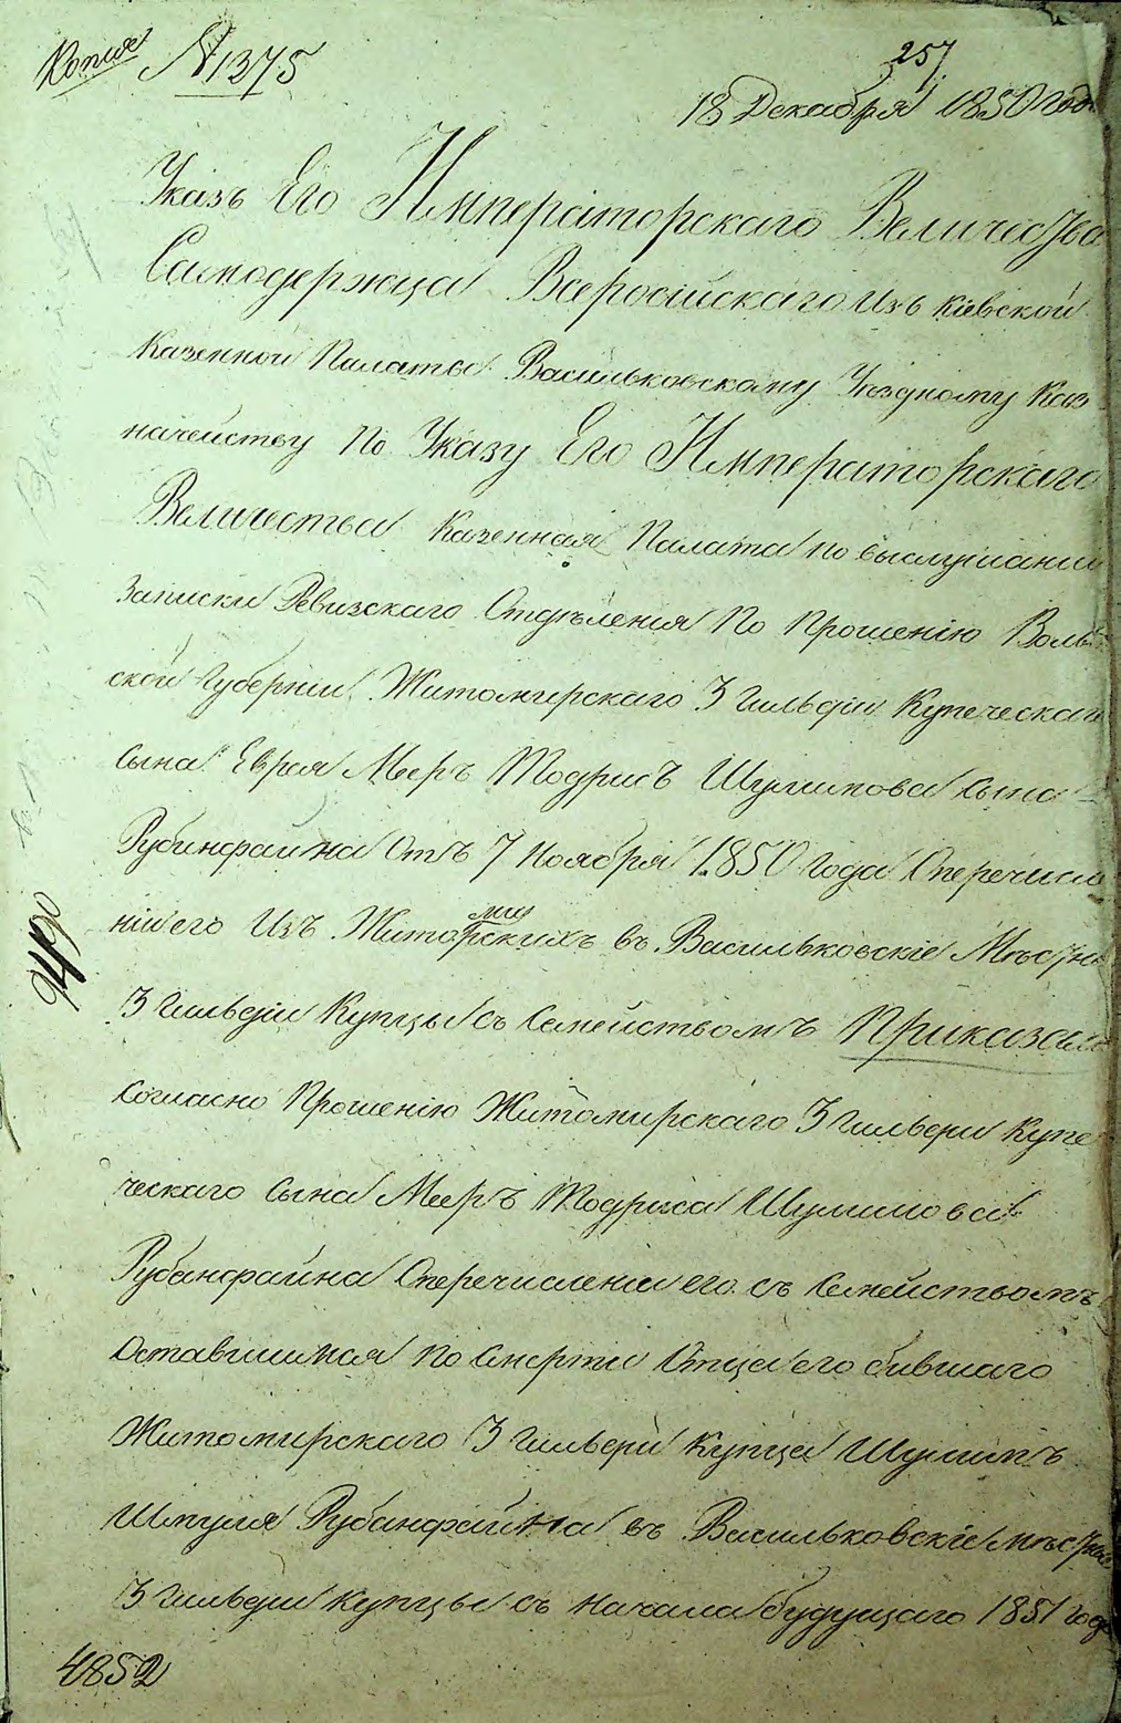 Копия №1375
257.
18 Декабря 1850 года
Указъ Его Императорскаго Величества
Самодержца Всеросійскаго изъ Кіевской
Казенной Палаты Васильковскому Уездному Каз
начейству По Указу Его Императорскаго
Величества Казенная Палата по выслушании
Записки Ревизскаго Отдѣленія По Прошенію Волы
ской Губерніи Житомирскаго 3 Гильдіи Купеческаго
Сына Еврея Меер Ъ Тодрисъ Шулимова Сына
Рубинфайна Отъ 7 Ноября 1850 Года Оперечисле
ніи его Изъ Житомирскихъ въ Васильковскіе Мѣстные
3 Гильдіи Купцы съ Семействомъ Приказали
Согласно Прошенію Житомирскаго 3 Гильдіи Купе
ческаго Сына Мееръ Тодриса Шулимова
Рубанфайна Оперечисленіи его съ Семействомъ
Оставшимся По Смерти Отца его бывшаго
Житомирскаго 3 Гильдіи Купца Шулимъ
Шмуля Рубанфайна въ Васильковскіе мѣстные
3 Гильдіи Купцы съ Начала будущаго 1851 года
9490
4852